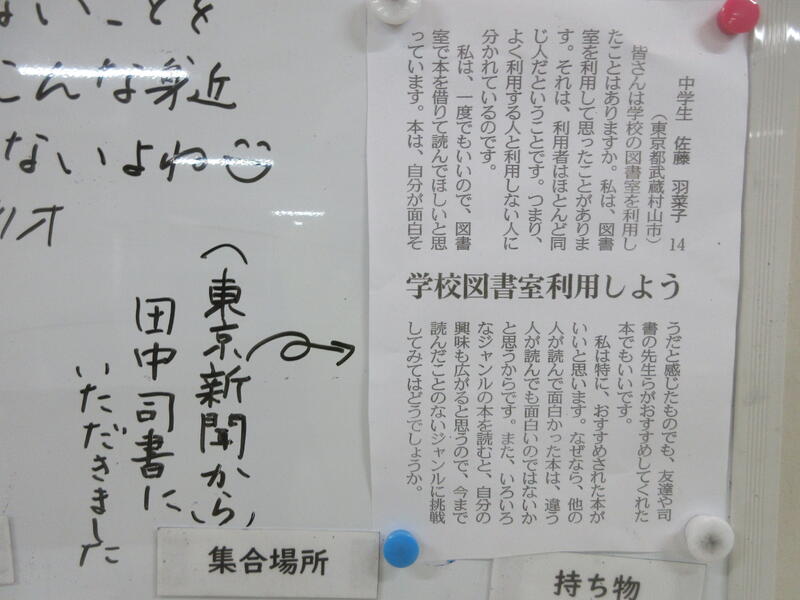 ないことを
こんな身近
ないよね
リオ
（東京新聞から）
田中司書に
いただきました
学校図書室利用しよう
中学生　佐藤　羽菜子　14
（東京都武蔵村山市）
皆さんは学校の図書室を利用し
たことはありますか。私は、図書
室を利用して思ったことがありま
す。それは、利用者はほとんど同
じ人だということです。つまり、
よく利用する人と利用しない人に
分かれているのです。
私は、一度でもいいので、図書
室で本を借りて読んでほしいと思
っています。本は、自分が面白そ
うだと感じたものでも、友達や司
書の先生らがおすすめしてくれた
本でもいいです。
私は特に、おすすめされた本が
いいと思います。なぜなら、他の
人が読んで面白かった本は、違う
人が読んでも面白いのではないか
と思うからです。また、いろいろ
なジャンルの本を読むと、自分の
興味も広がると思うので、今まで
読んだことのないジャンルに挑戦
してみてはどうでしょうか。
集合場所
持ち物